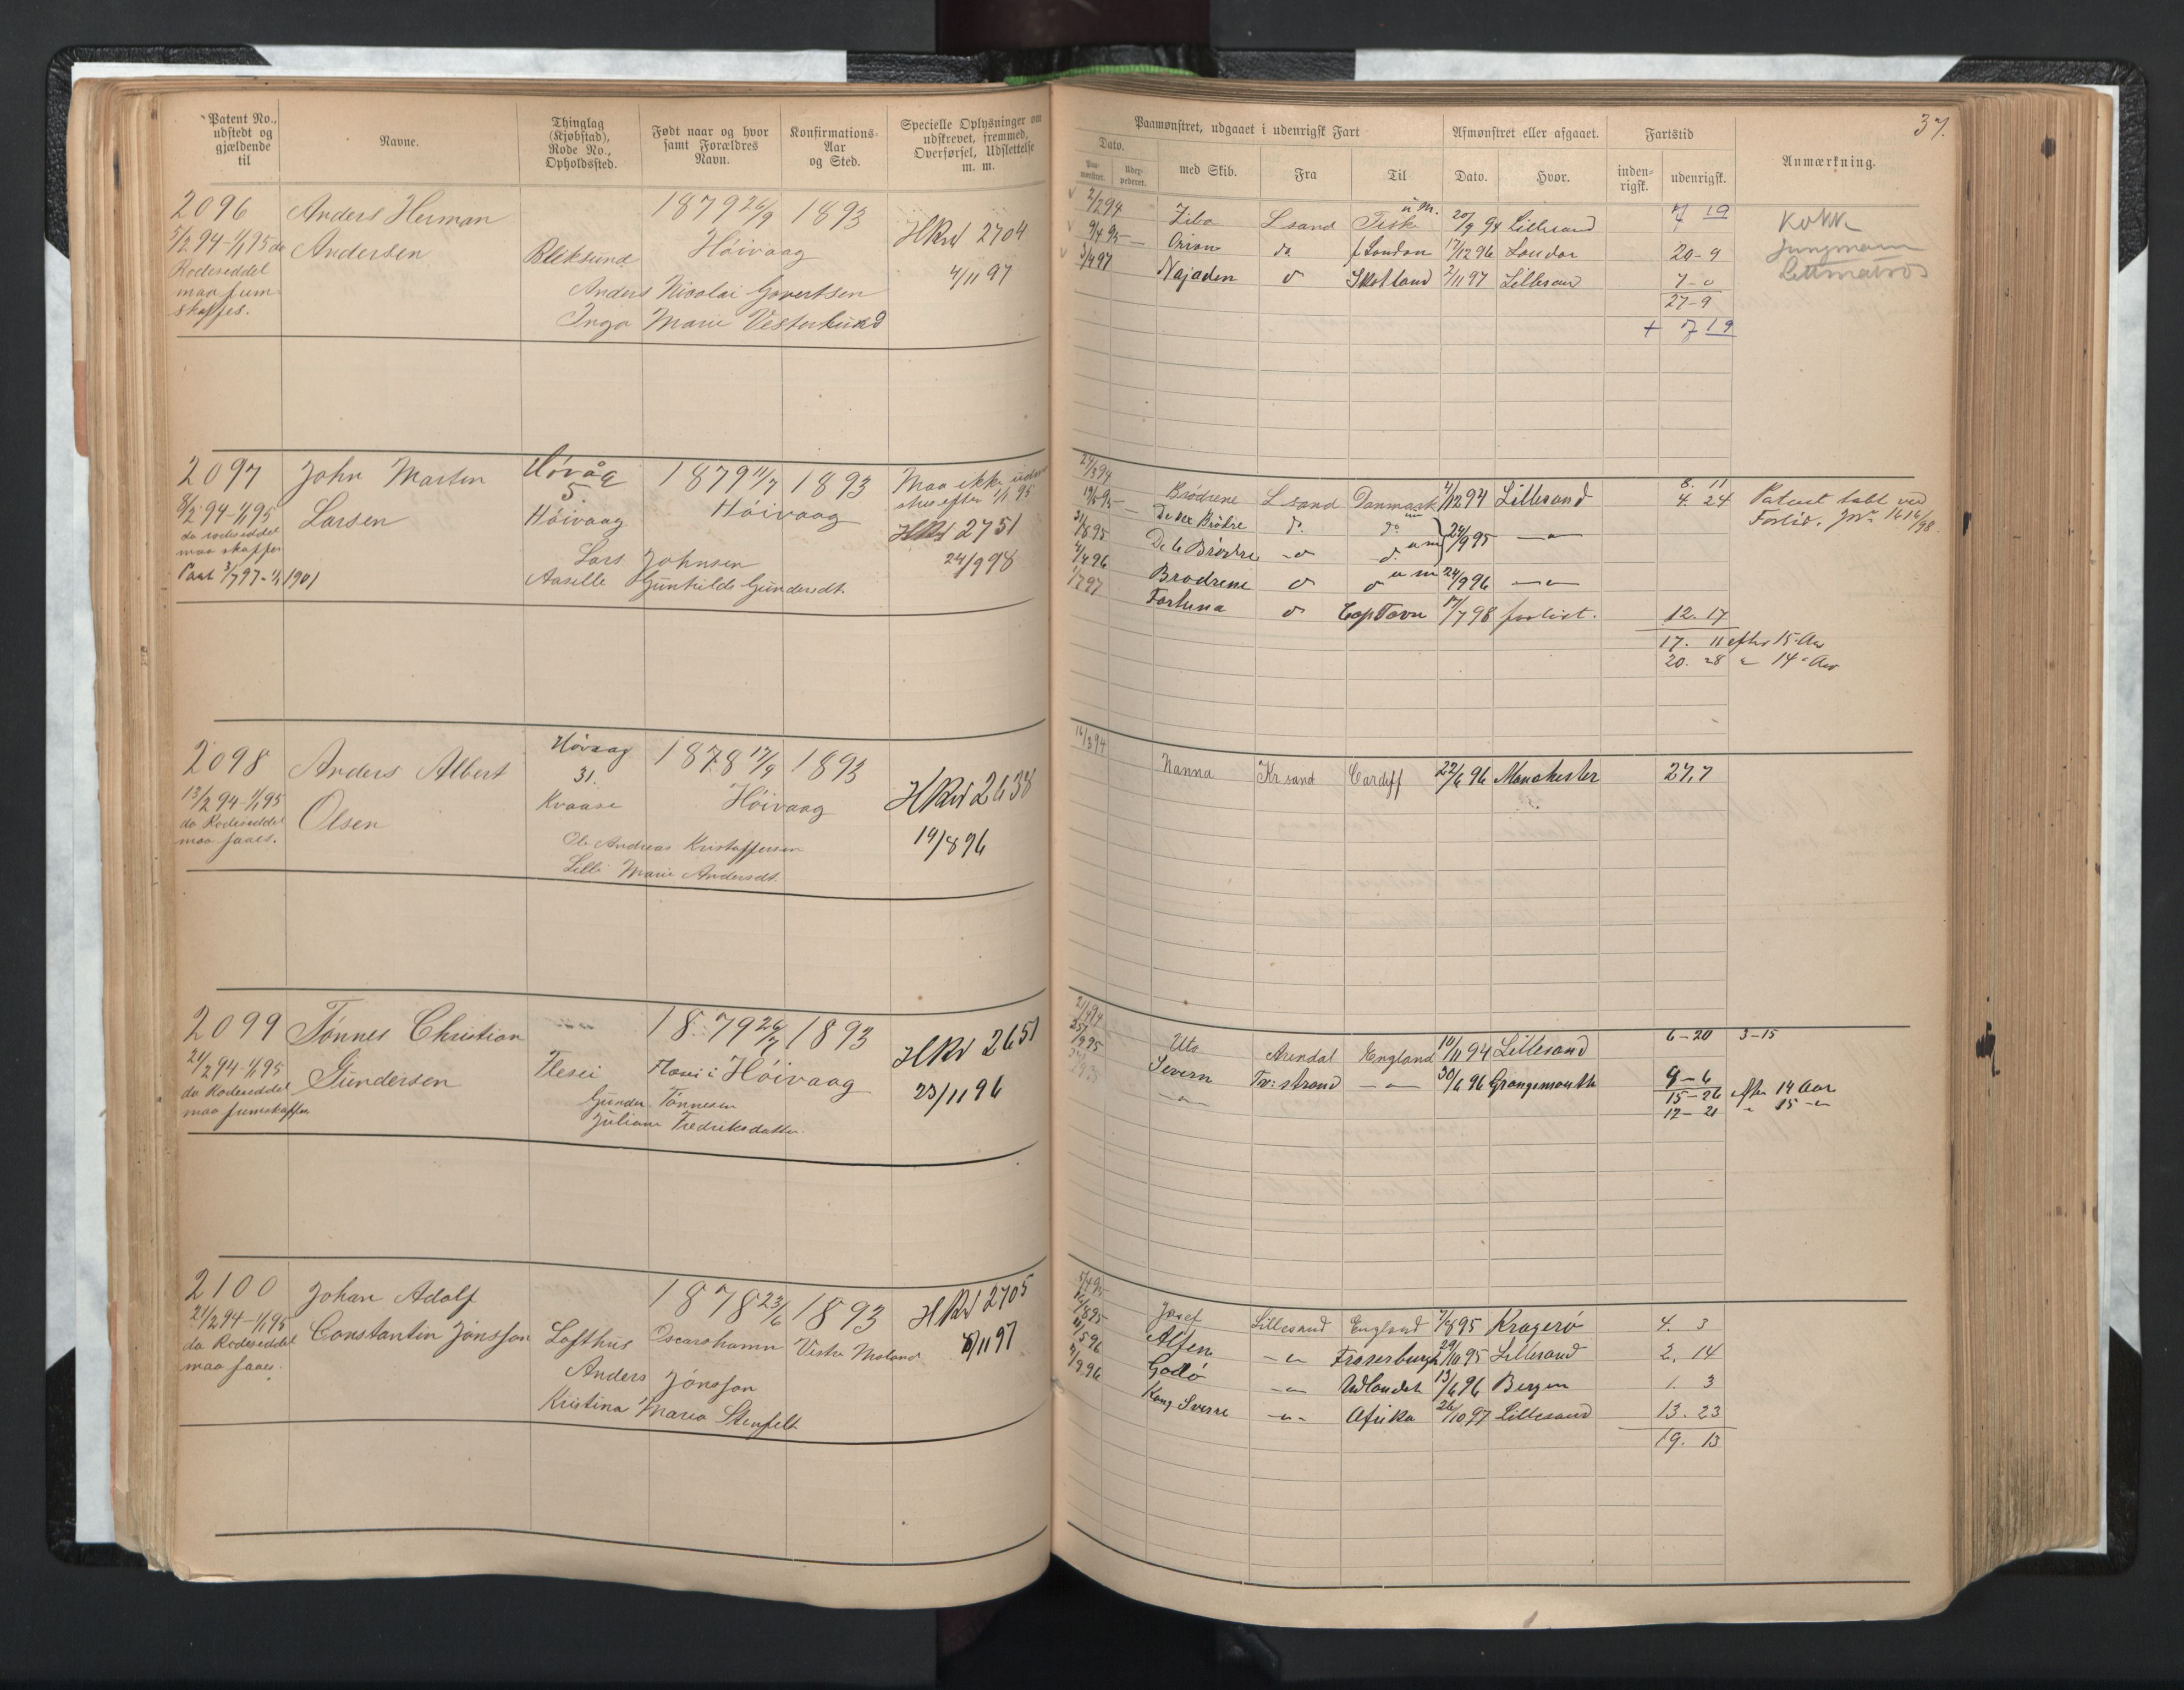 Patent No., udstedt og gjældende til
Navne.
Thinglag (Kjøbstad), Rode No., Opholdssted.
Født naar og hvor samt Forældres Navn.
Konfirmations-Aar og Sted.
Specielle Oplysninger om udskrevet, fremmed, Overførsel, Udslettelse m. m.
2096 Anders Herman 1879 26/9 1893 HRul 2704
5/2 94-1/1 95 da Andersen Bleksund Høivaag
Rodeseddel 4/11 97
maa frem Anders Nicolai Govertsen
skaffes. Inga Marie Vesterlund
2097 John Martin Høvåg 1879 11/7 1893 Maa ikke
5
8/2 94-1/1 95 Larsen Høivaag Høivaag efter 1/1 95
da rodeseddel HRul 2751
maa skaffes Lars Johnsen 24/9 98
Pat 3/7 97-1/1 1901 Aaselle Gunhilde Gundersdt.
2098 Anders Albert Høvaag 1878 17/9 1893 HRul 2638
31.
13/2 94-1/1 95 Olsen Kvaase Høivaag
da Rodeseddel 19/8 96
maa faaes. Ole Andreas Kristoffersen
Lilli Marie Andersdt.
2099 Tønnes Christian 1879 26/7 1893 HRul 2651
21/2 94-1/1 95 Gundersen Flesei Høivaag
da Rodeseddel 23/11 96
maa fremskaffes Gunder Tønnesen
Juliane Fredriksdatter
2100 Johan Adolf 1878 23/6 1893 HRul 2705
21/2 94-1/1 95 Constantin Jonsson Lofthus Oscarshamn Vestre Moland
da Rodeseddel 8/11 97
maa faaes. Anders Jonsson
Kristina Maria Stenfelt
37.
Paamønstret, udgaaet i udenrigsk Fart
Afmønstret eller afgaaet.
Fartstid
Anmærkning.
Dato.
Paamønstret.
med Skib.
Fra
Til
Dato.
Hvor.
inden-rigsk.
udenrigsk.
2/2 94 Ziba L sand Fisk u m. 20/9 94 Lillesand 7 19 Kokk
9/4 95 Orion do f London 17/12 96 London 20-9 Jungmann
3/4 97 Najaden " Skotland 2/11 97 Lillesand 7-0 Lettmatros
27-9
+ 7 19
27/3 94 Brødrene L sand Danmark 4/12 94 Lillesand 8. 11
4. 24 Patent tabt ved
De tre Brødre do do Forlis. Jr 16 16/9 98.
31/8 95 De to Brødre " do u m 24/9 95 "
4/4 96 Brødrene " " u m 24/9 96 "
1/7 97 Fortuna " Cap Town 17/7 98 forlist. 12. 17
17. 11 efter 15 Aar
20. 28 " 14 Aar
16/3 94 Nanna Kr.sand Cardiff 22/6 96 Manchester 27,7
21/4 94 Uto Arendal England 10/11 94 Lillesand 6-20 3-15
Severn Tvedestrand " 30/6 96 Grangemouth 9-6
15-26 efter 14 Aar
12-21 " 15 "
5/4 95 Josef Lillesand England 7/8 95 Kragerø 4. 3
16/8 95 Alfen " Fraserburgh 29/10 95 Lillesand 2. 14
11/5 96 Godø " Udlandet 13/6 96 Bergen 1. 3
Kong Sverre " Afrika 26/10 97 Lillesand 13. 23
19. 13